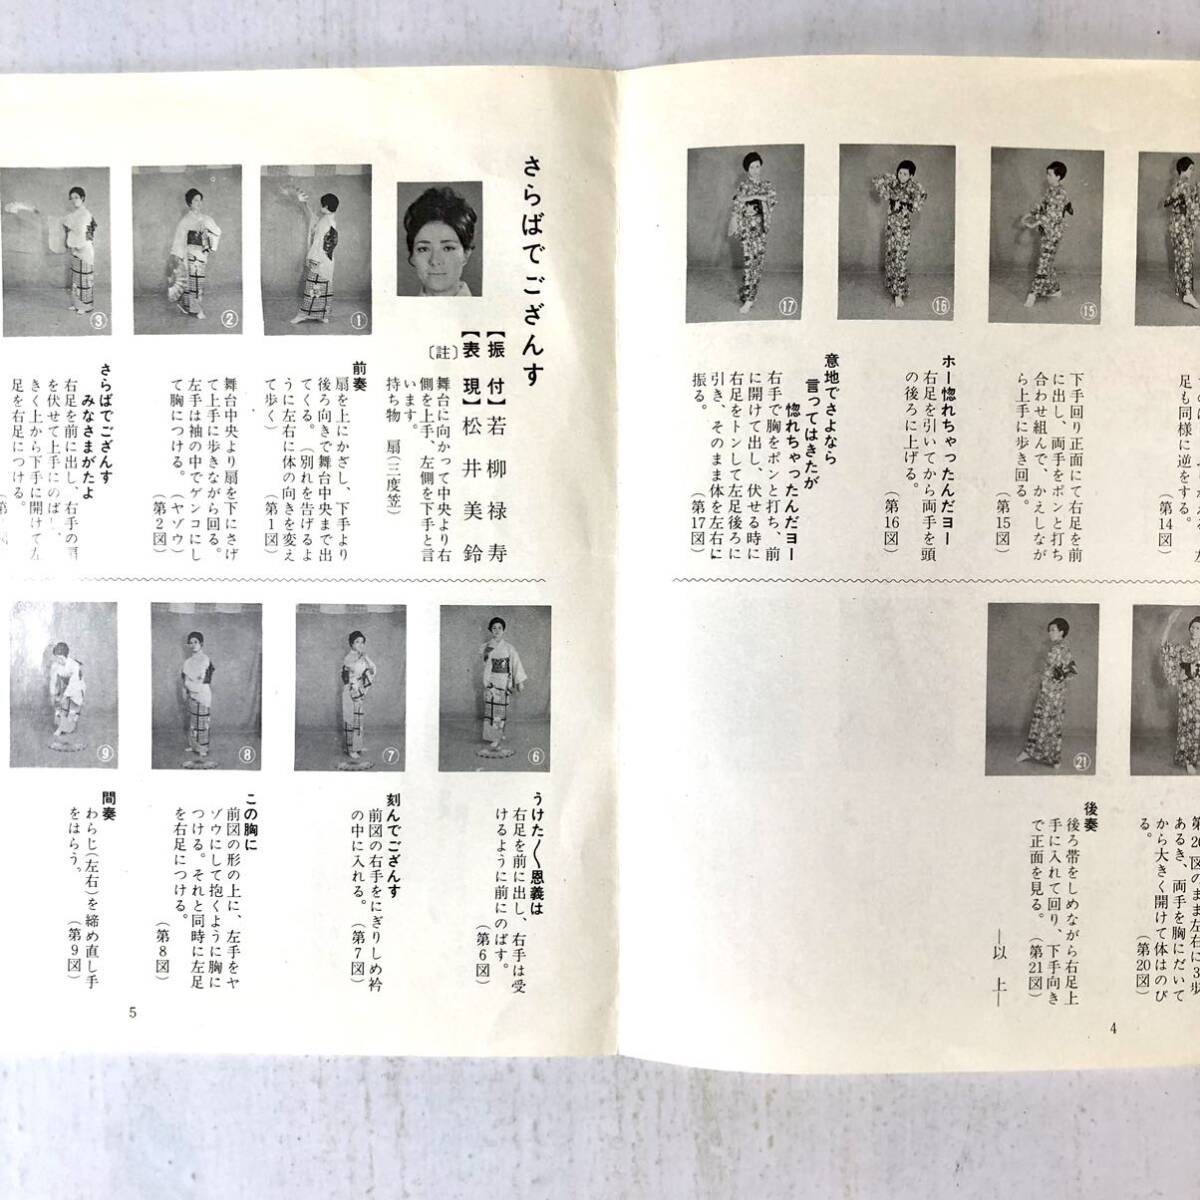 足も同様に逆をする。
(第14図)
下手回り正面にて右足を前
に出し、両手をポンと打ち
合わせ組んで、かえしなが
ら上手に歩き回る。
(第15図)
ホー惚れちゃったんだヨー
右足を引いてから両手を頭
の後ろに上げる。
(第16図)
意地でさよなら
言ってはきたが
惚れちゃったんだヨー
右手で胸をポンと打ち、前
に開けて出し、伏せる時に
右足をトンして左足後ろに
引き、そのまま体を左右に
振る。
(第17図)
⑮
⑯
⑰
第20図のまま左右に3歩
あるき、両手を胸にだいて
から大きく開けて体はのび
る。
(第20図)
後奏
後ろ帯をしめながら右足上
手に入れて回り、下手向き
で正面を見る。
(第21図)
—以 上—
㉑
4
さらばでござんす
【振 付】若 柳 禄 寿
【表 現】松 井 美 鈴
〔註〕
舞台に向かって中央より右
側を上手、左側を下手と言
います。
持ち物 扇(三度笠)
前奏
扇を上にかざし、下手より
後ろ向きで舞台中央まで出
てくる。(別れを告げるよ
うに左右に体の向きを変え
て歩く)
(第1図)
舞台中央より扇を下にさげ
て上手に歩きながら回る。
左手は袖の中でゲンコにし
て胸につける。(ヤゾウ)
(第2図)
さらばでござんす
みなさまがたよ
右足を前に出し、右手の扇
を伏せて上手にのばし、大
きく上から下手に開けて左
足を右足につける。
①
②
③
うけた〳〵恩義は
右足を前に出し、右手は受
けるように前にのばす。
(第6図)
刻んでござんす
前図の右手をにぎりしめ衿
の中に入れる。
(第7図)
この胸に
前図の形の上に、左手をヤ
ゾウにして抱くように胸に
つける。それと同時に左足
を右足につける。
(第8図)
間奏
わらじ(左右)を締め直し手
をはらう。
(第9図)
⑥
⑦
⑧
⑨
5